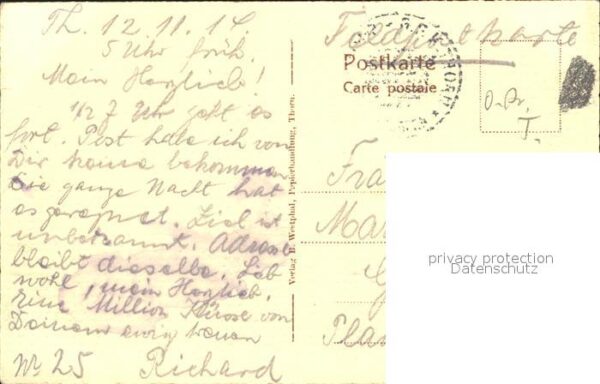 Th. 12.11.14.
5 Uhr früh.
Mein Herzlieb!
1/2 7 Uhr geht es
fort. Post habe ich von
Dir keine bekommen
Die ganze Nacht hat
es geregnet. Ziel ist
unbekannt. Adresse
bleibt dieselbe. Leb
wohl, mein Herzlieb,
Eine Million Küsse von
Deinem ewig treuen
No 25 Richard
Verlag B. Westphal, Papierhandlung, Thorn.
Feldpostkarte
Postkarte
Carte postale
Fra
Mar
Pla
privacy protection
Datenschutz